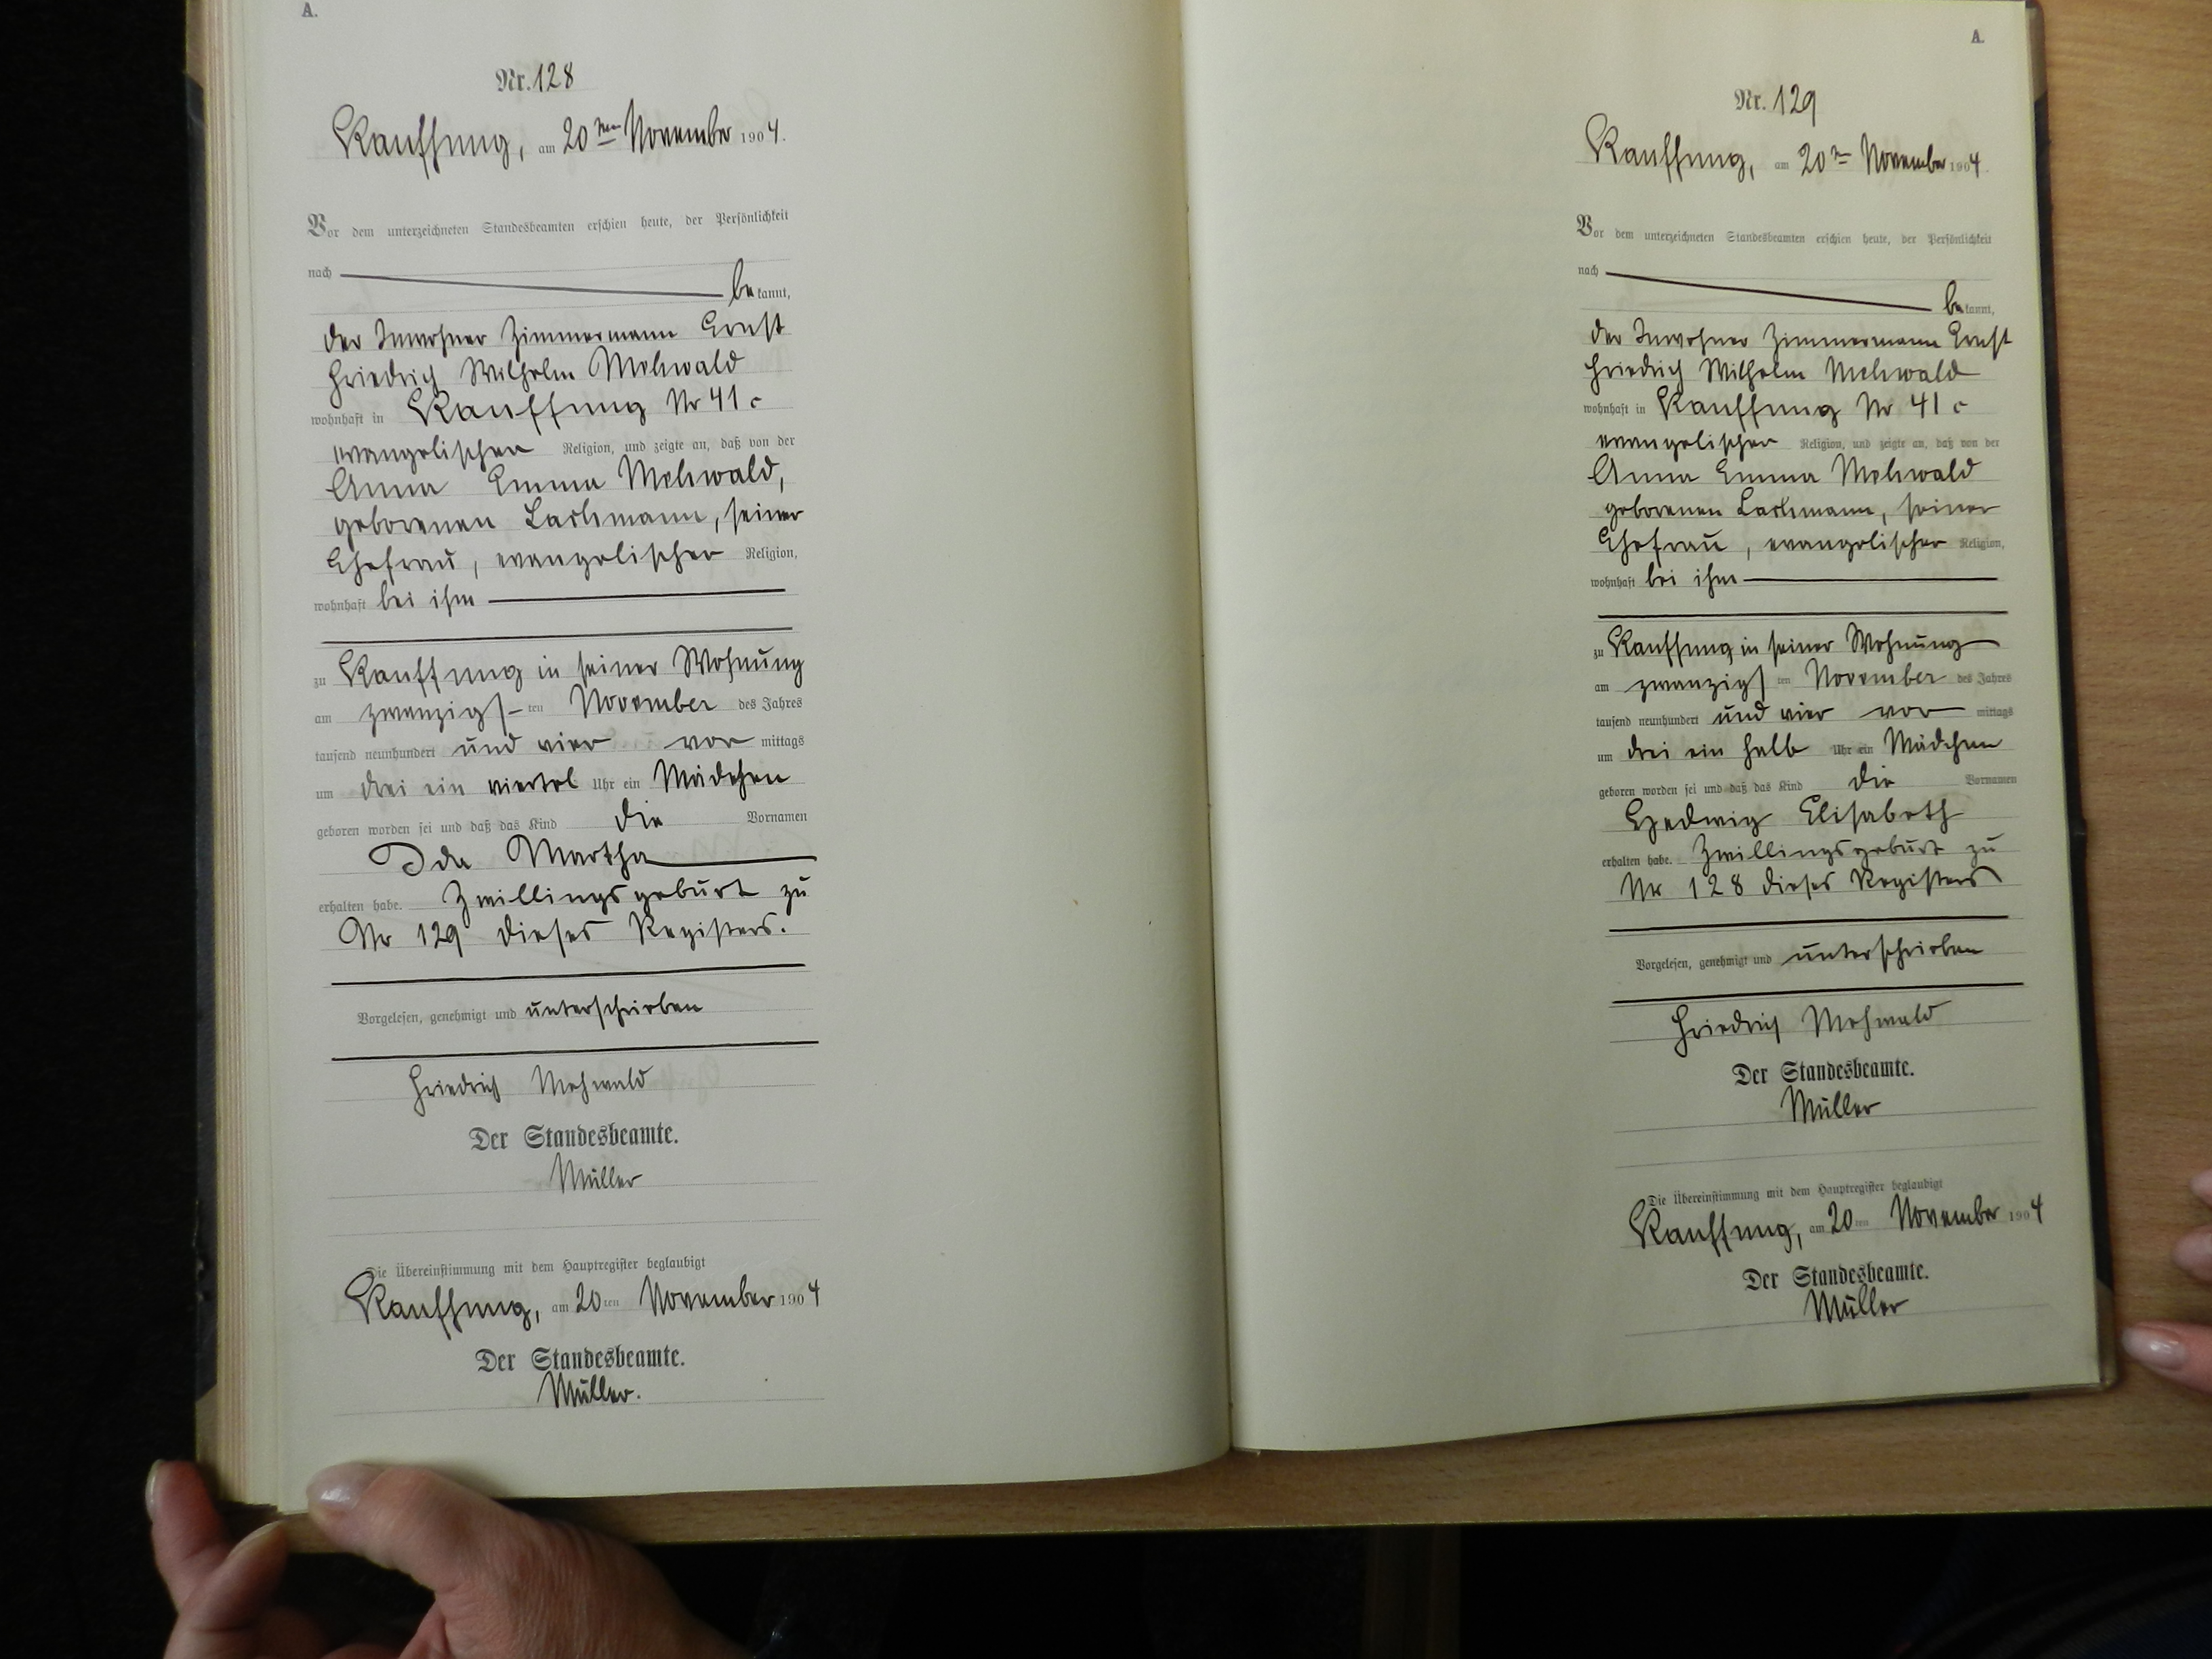 A.
Nr. 128
Kauffung, am 20ten November 1904.
Vor dem unterzeichneten Standesbeamten erschien heute, der Persönlichkeit
nach
bekannt,
der Inwohner Zimmermann Ernst
Friedrich Wilhelm Mehwald
wohnhaft in Kauffung Nr 41 c
evangelischer Religion, und zeigte an, daß von der
Anna Emma Mehwald,
geborenen Lachmann, seiner
Ehefrau, evangelischer Religion,
wohnhaft bei ihm
zu Kauffung in seiner Wohnung
am zwanzigsten November des Jahres
tausend neunhundert und vier vormittags
um drei ein viertel Uhr ein Mädchen
geboren worden sei und daß das Kind die Vornamen
Ida Martha
erhalten habe. Zwillingsgeburt zu
Nr 129 dieses Registers.
Vorgelesen, genehmigt und unterschrieben
Friedrich Mehwald
Der Standesbeamte.
Müller
Die Übereinstimmung mit dem Hauptregister beglaubigt
Kauffung, am 20ten November 1904
Der Standesbeamte.
Müller.
A.
Nr. 129
Kauffung, am 20ten November 1904.
Vor dem unterzeichneten Standesbeamten erschien heute, der Persönlichkeit
nach
bekannt,
der Inwohner Zimmermann Ernst
Friedrich Wilhelm Mehwald
wohnhaft in Kauffung Nr 41 c
evangelischer Religion, und zeigte an, daß von der
Anna Emma Mehwald
geborenen Lachmann, seiner
Ehefrau, evangelischer Religion,
wohnhaft bei ihm
zu Kauffung in seiner Wohnung
am zwanzigsten November des Jahres
tausend neunhundert und vier vormittags
um drei ein halb Uhr ein Mädchen
geboren worden sei und daß das Kind die Vornamen
Hedwig Elisabeth
erhalten habe. Zwillingsgeburt zu
Nr 128 dieses Registers
Vorgelesen, genehmigt und unterschrieben
Friedrich Mehwald
Der Standesbeamte.
Müller
Die Übereinstimmung mit dem Hauptregister beglaubigt
Kauffung, am 20ten November 1904
Der Standesbeamte.
Müller